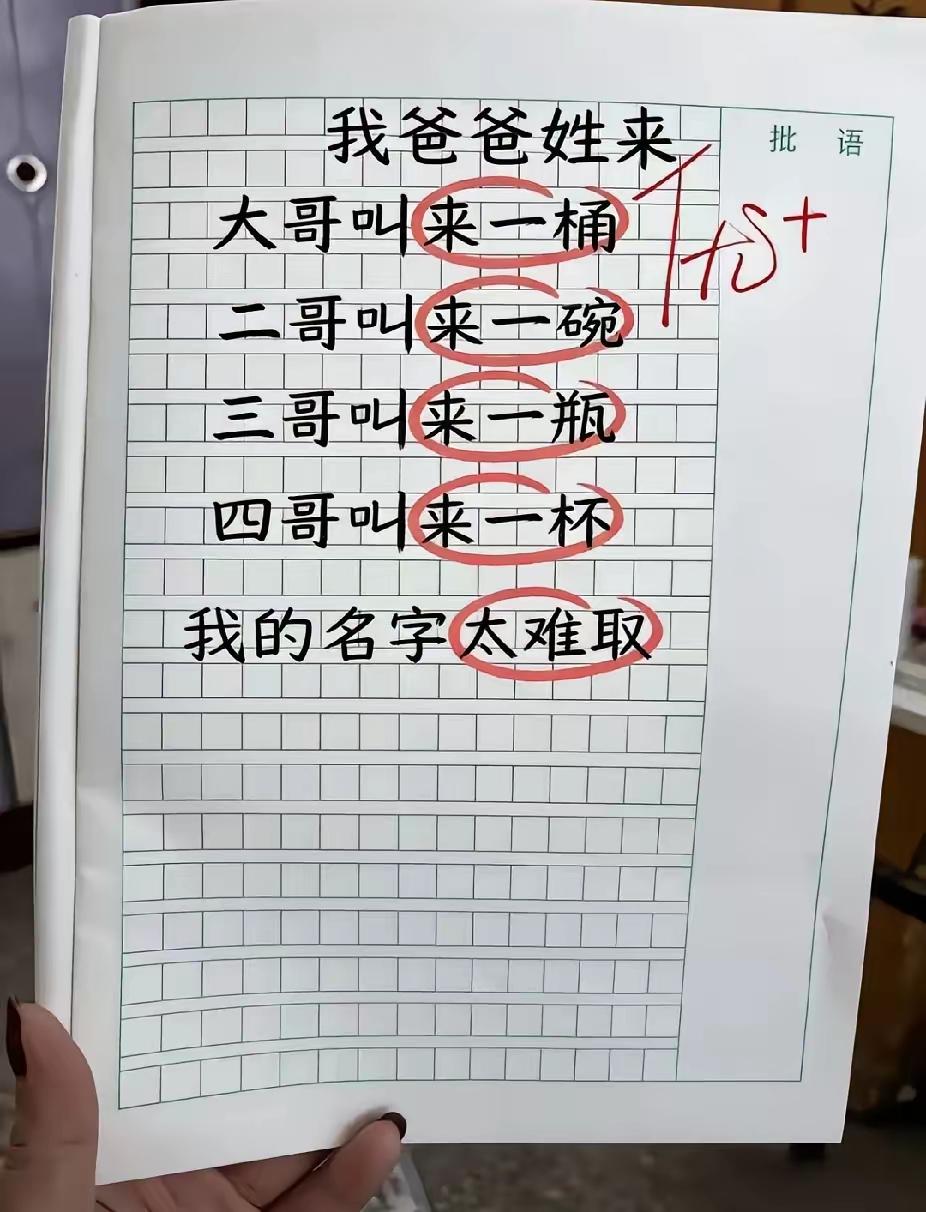 我爸爸姓来
批 语
大哥叫来一桶
二哥叫来一碗
三哥叫来一瓶
四哥叫来一杯
我的名字太难取